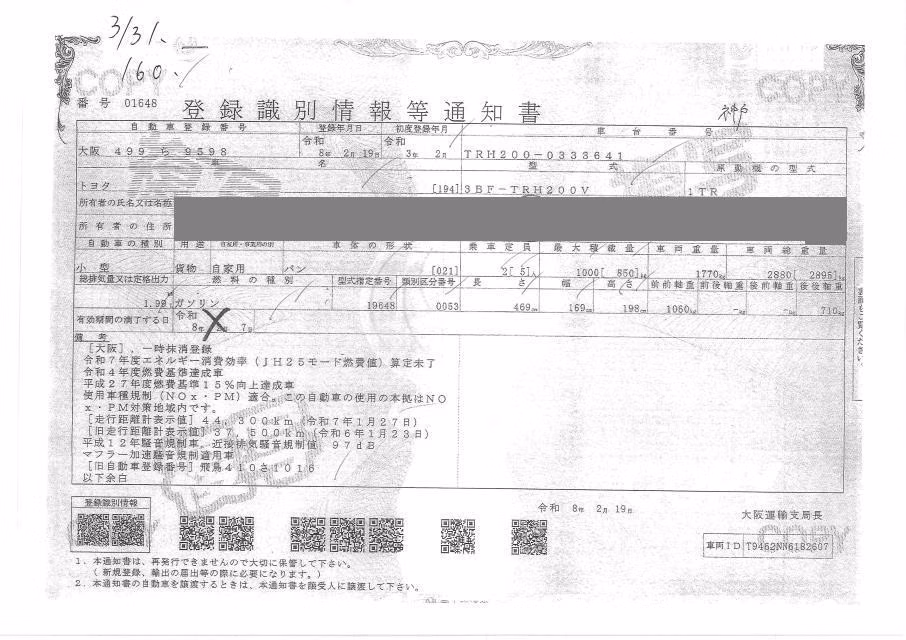 3/31.
160.
COPY
COPY
番号 01648 登録識別情報等通知書
神戸
自動車登録番号 登録年月日 初度登録年月 車台番号
大阪 499 ら 9598 令和 8年 2月 19日 令和 3年 2月 TRH200-0333641
車名 型式 原動機の型式
トヨタ [194] 3BF-TRH200V 1TR
所有者の氏名又は名称
所有者の住所
自動車の種別 用途 自家用・事業用の別 車体の形状 乗車定員 最大積載量 車両重量 車両総重量
小型 貨物 自家用 バン [021] 2[ 5]人 1000[ 850]kg 1770kg 2880[ 2895]kg
総排気量又は定格出力 燃料の種別 型式指定番号 類別区分番号 長さ 幅 高さ 前前軸重 前後軸重 後前軸重 後後軸重
1.99 ガソリン 19648 0053 469cm 169cm 198cm 1060kg -kg -kg 710kg
有効期間の満了する日 令和 8年 2月 7日
備考
[大阪]，一時抹消登録
令和7年度エネルギー消費効率（JH25モード燃費値）算定未了
令和4年度燃費基準達成車
平成27年度燃費基準15％向上達成車
使用車種規制（NOx・PM）適合。この自動車の使用の本拠はNO
x・PM対策地域内です。
[走行距離計表示値] 44，300km（令和7年1月27日）
[旧走行距離計表示値] 37，500km（令和6年1月23日）
平成12年騒音規制車，近接排気騒音規制値 97dB
マフラー加速騒音規制適用車
[旧自動車登録番号] 飛鳥410さ1016
以下余白
登録識別情報
令和 8年 2月 19日
大阪運輸支局長
車両ID T9462NN6182607
COPY
1．本通知書は、再発行できませんので大切に保管して下さい。
（新規登録、輸出の届出等の際に必要になります。）
2．本通知書の自動車を譲渡するときは、本通知書を譲受人に譲渡して下さい。